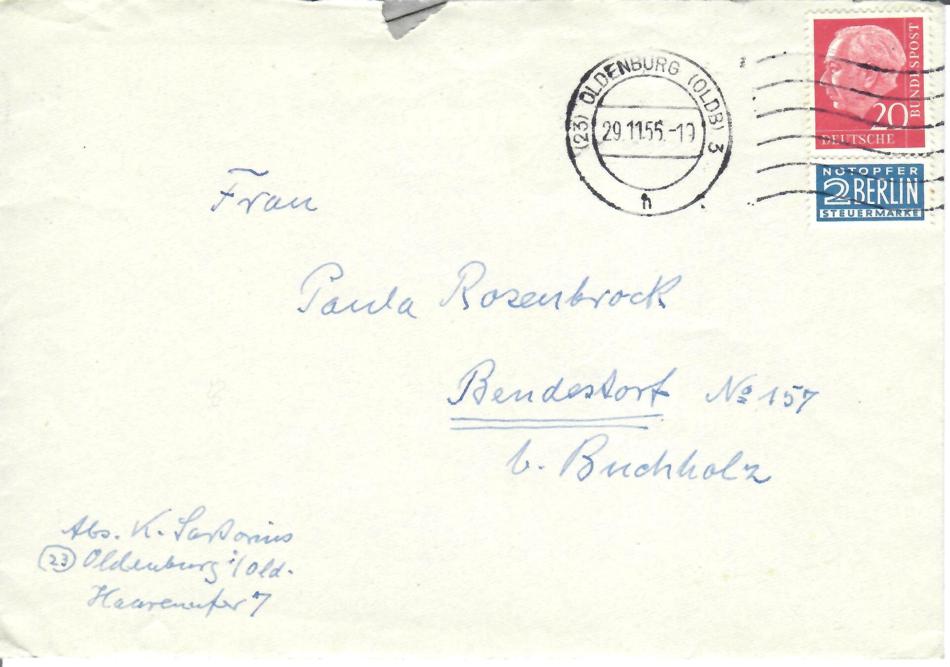 (23) OLDENBURG (OLDB) 3
29.11.55.-19
h
20
DEUTSCHE
BUNDESPOST
NOTOPFER
2 BERLIN
STEUERMARKE
Frau
Paula Rosenbrock
Bendestorf No 157
b. Buchholz
Abs. K. Sartorius
(23) Oldenburg i/Old.
Haarenufer 7